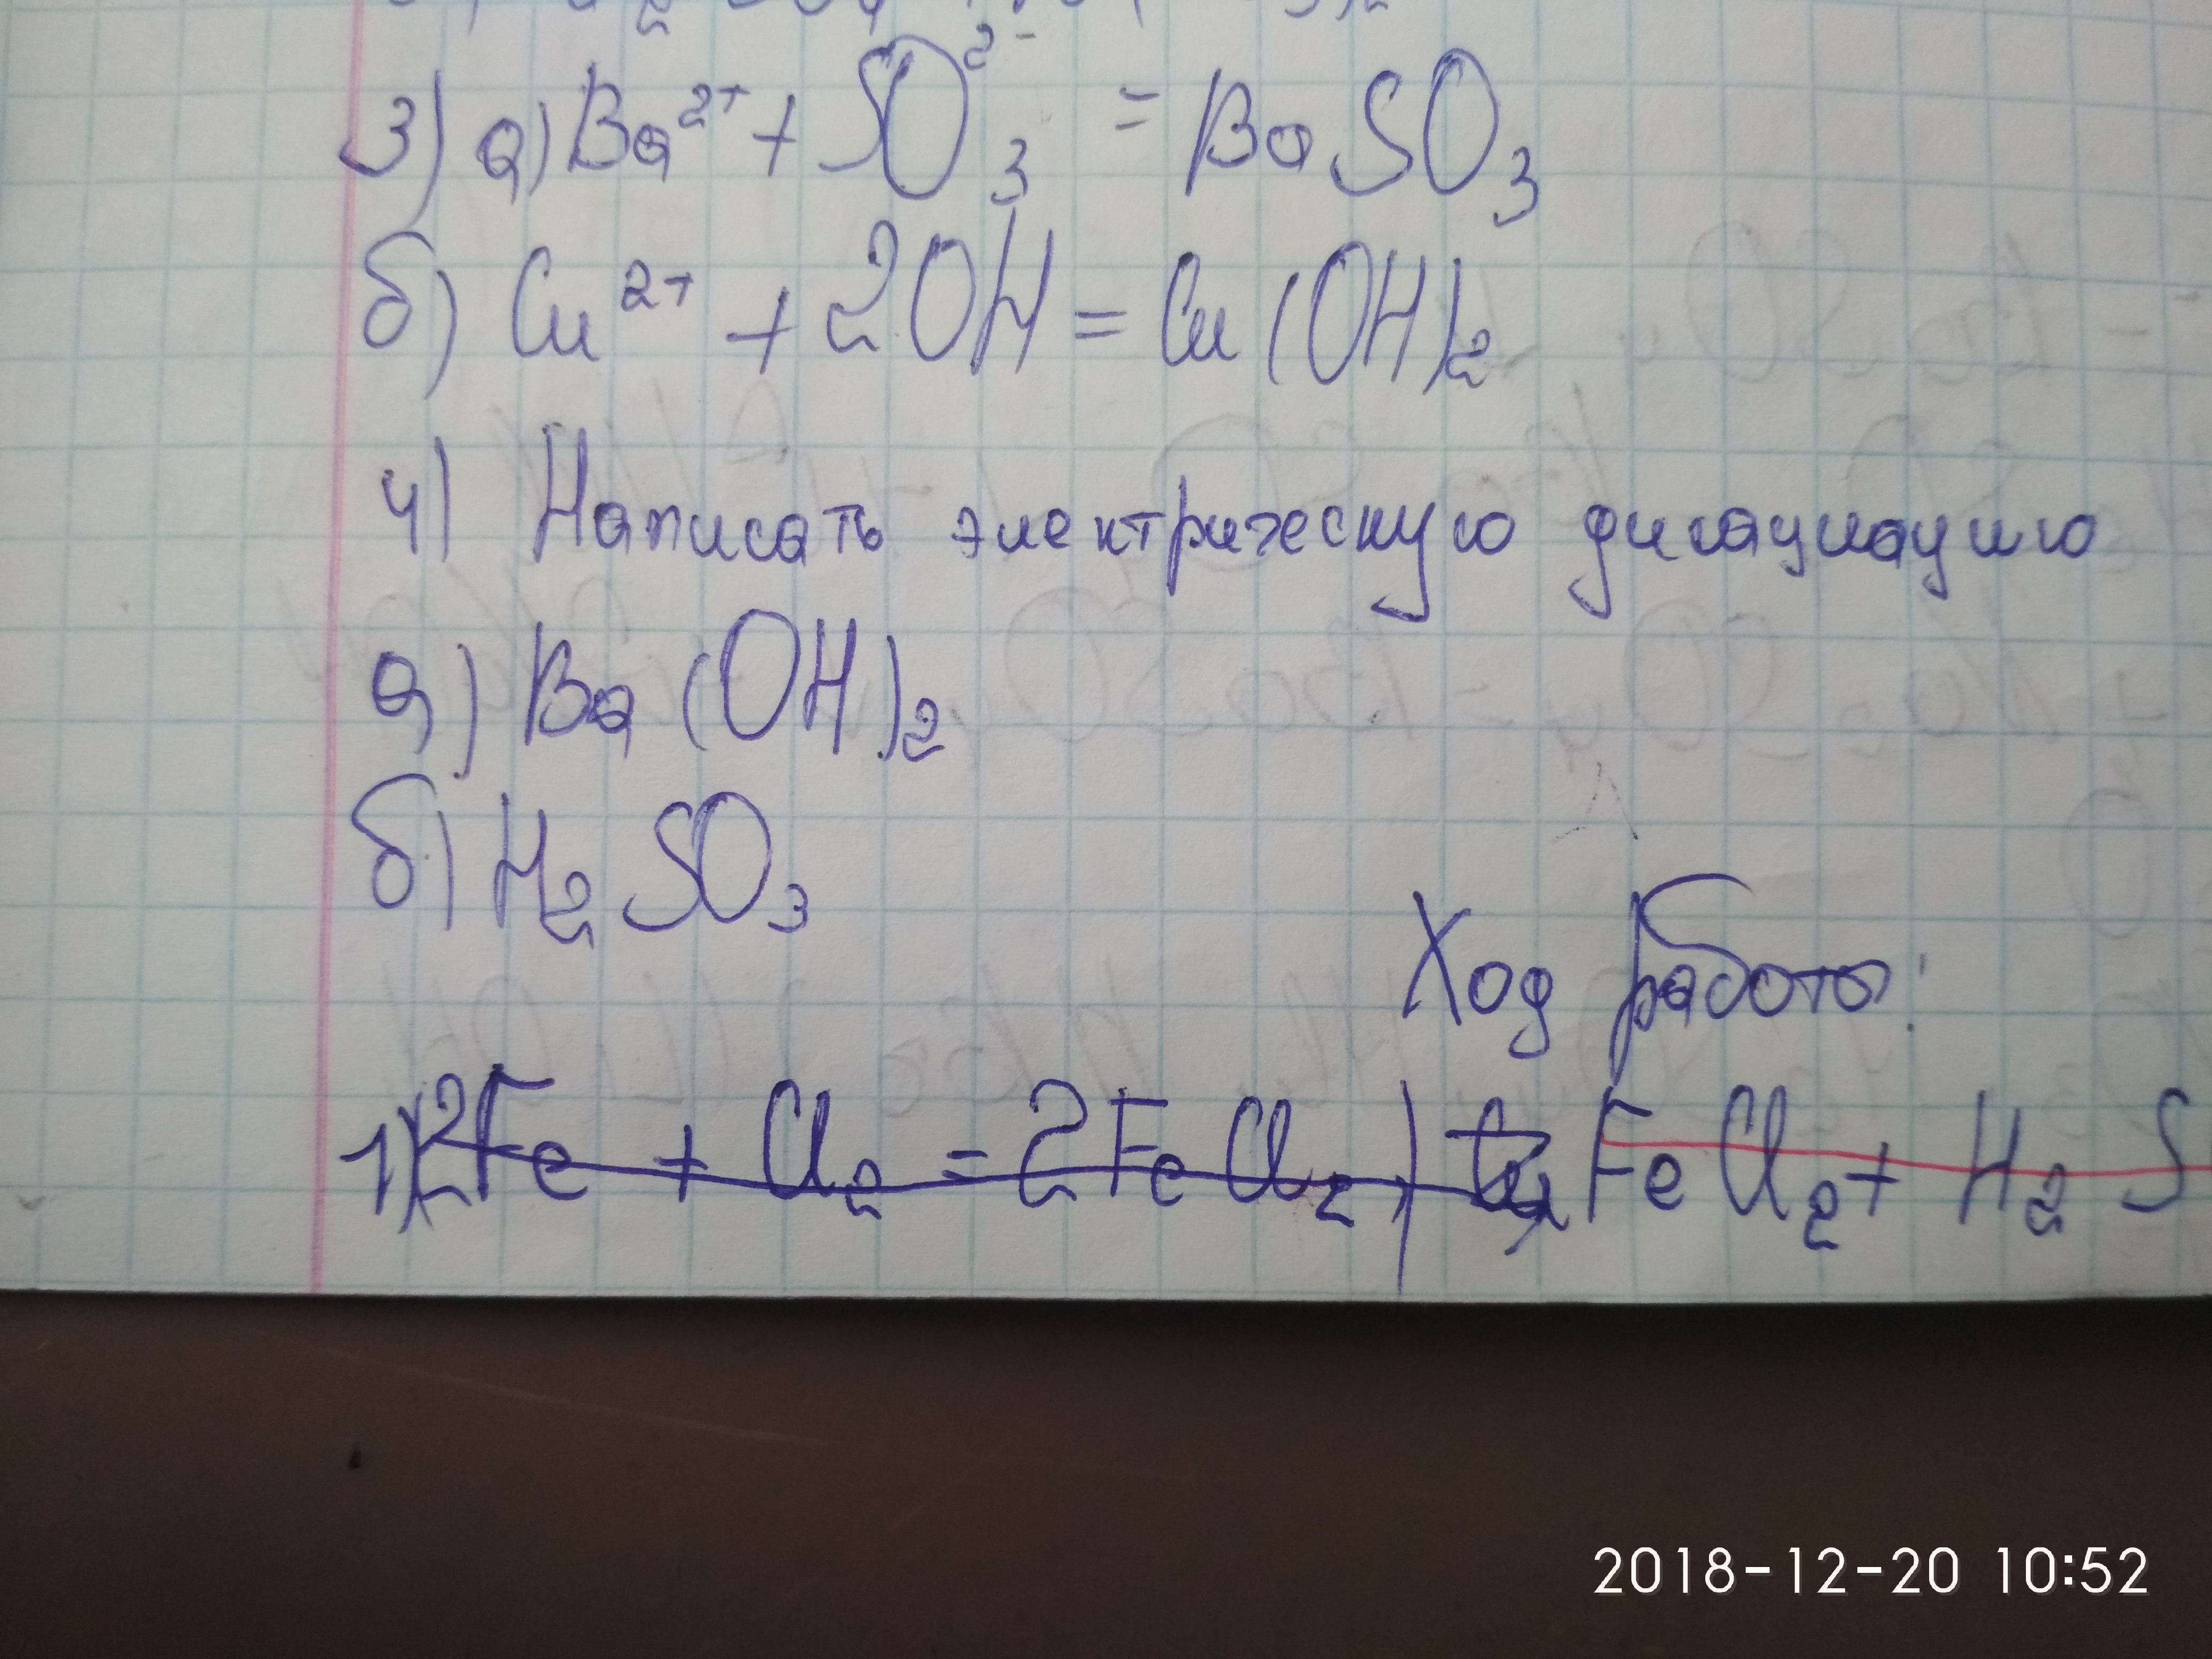 3) а) Ba²⁺ + SO₃²⁻ = BaSO₃
б) Cu²⁺ + 2OH = Cu(OH)₂
4) Написать электрическую дисациацию
а) Ba(OH)₂
б) H₂SO₃
Ход работы:
1) 2Fe + Cl₂ = 2FeCl₂) FeCl₂ + H₂S
2018-12-20 10:52